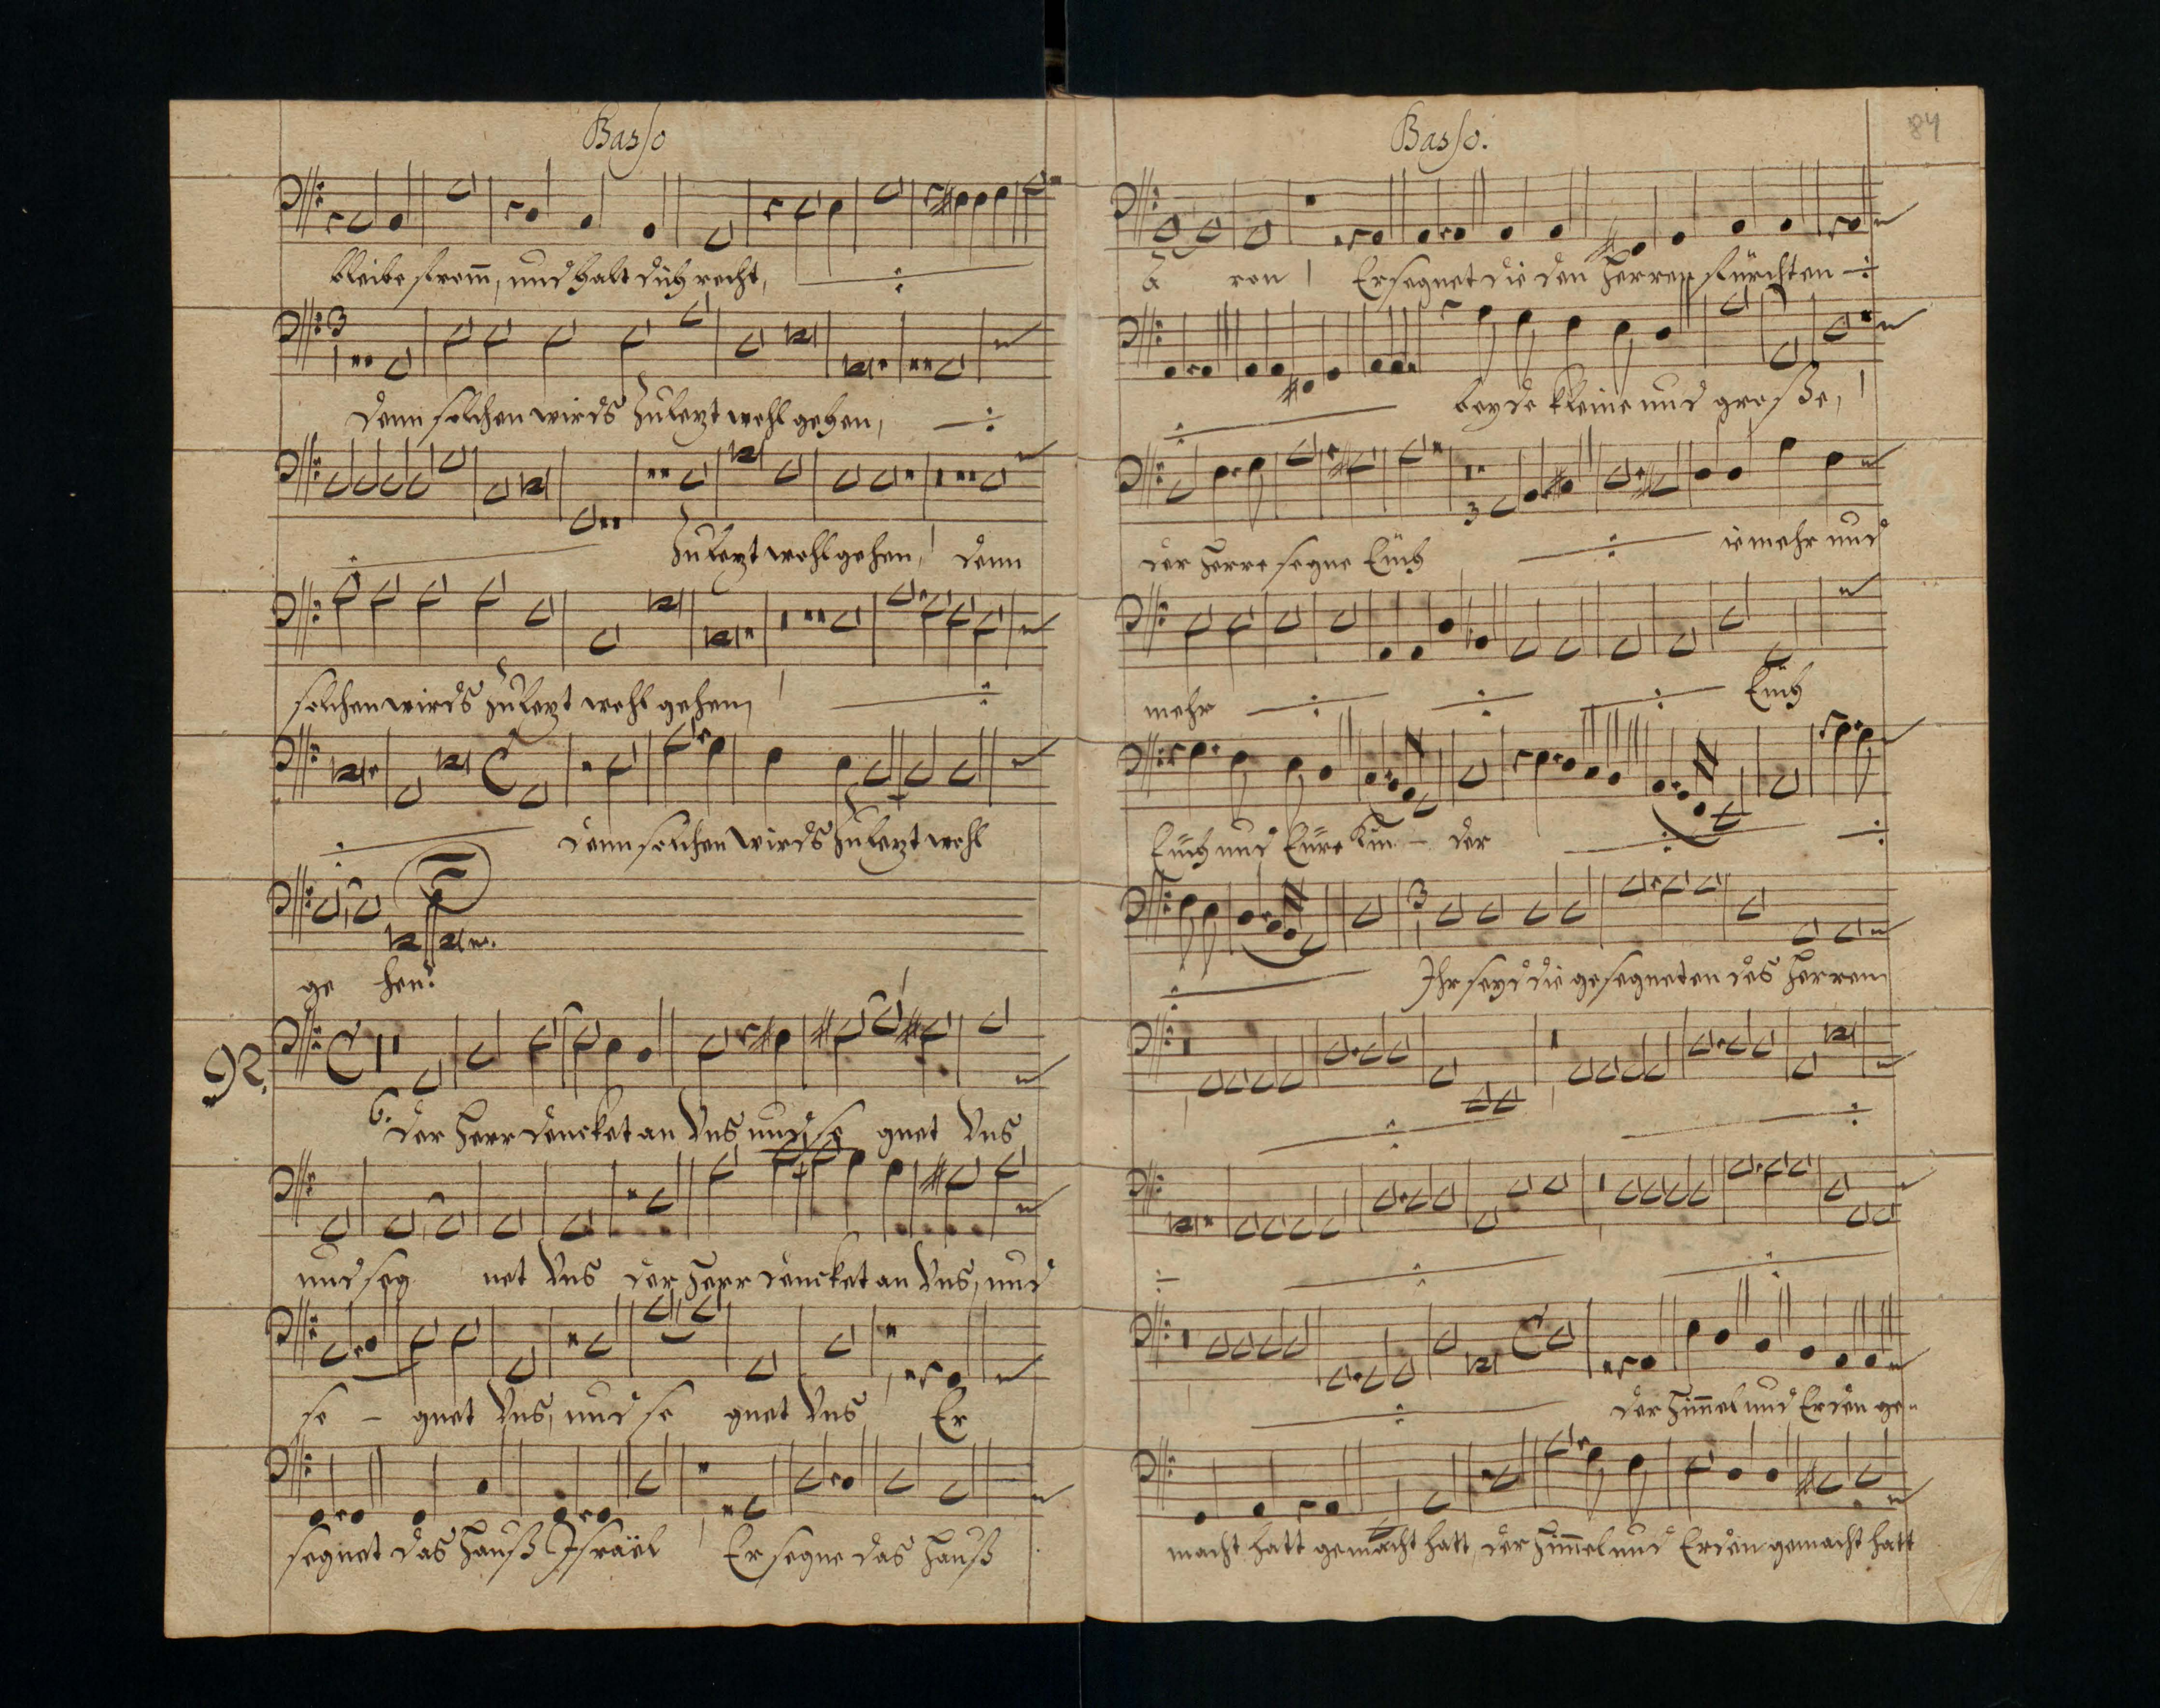 Basso
bleibe from̅, und halt dich recht,
denn solchen wirds zuletzt wohl gehen,
zuletzt wohl gehen, denn
solchen wirds zuletzt wohl gehen,
denn solchen wirds zuletzt wohl
ge hen.
92.
6. der Herr dencket an Vns und se gnet Vns
und seg net Vns der Herr dencket an Vns, und
se - gnet Vns, und se gnet Vns Er
segnet das Hauß Israël Er segne das Hauß
Basso.
84
a ron Er segnet die den Herren fürchten
beyde kleine und große,
der Herre segne Euch ie mehr und
mehr Euch
Euch und Eure Kin - der
Ihr seyd die gesegneten des Herren
der Him̅el und Erden ge-
macht hatt gemacht hatt, der Him̅el und Erden gemacht hatt